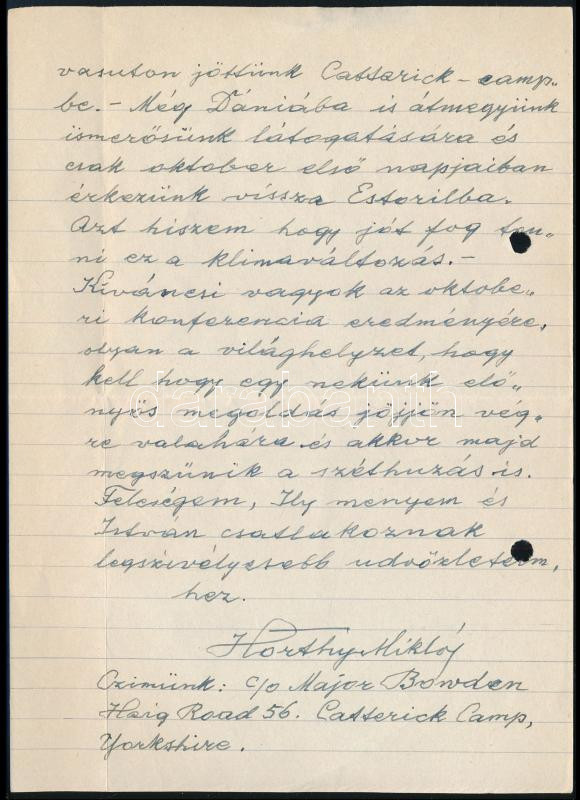 vasuton jöttünk Catterick-camp„
be.- Még Dániába is átmegyünk
ismerősünk látogatására és
csak oktober első napjaiban
érkezünk vissza Estorilba.
Azt hiszem hogy jót fog ten„
ni ez a klimaváltozás.-
Kiváncsi vagyok az oktobe„
ri konferencia eredményére,
olyan a világhelyzet, hogy
kell hogy egy nekünk elő„
nyös megoldás jöjjön vég„
re valahára és akkor majd
megszünik a széthuzás is.
Feleségem, Ily menyem és
István csatlakoznak
legszivélyesebb udvözletem,
hez.
Horthy Miklós
Czimünk: c/o Major Bowden
Haig Road 56. Catterick Camp,
Yorkshire.
darabanth